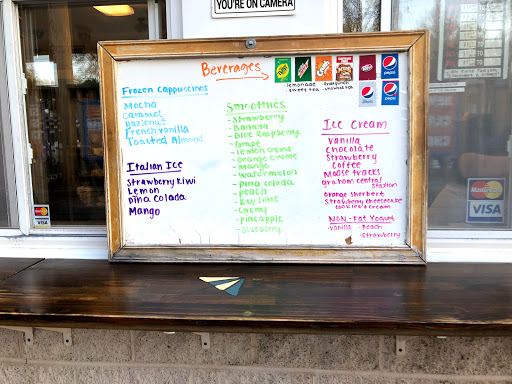 YOU'RE ON CAMERA
Beverages
lemonade
sweet tea
Frozen Cappuccinos
Mocha
Caramel
Hazelnut
French Vanilla
Toasted Almond
Italian Ice
Strawberry Kiwi
Lemon
Pina Colada
Mango
Smoothies
- Strawberry
- Banana
- Blue Raspberry
- Grape
- lemon creme
- orange creme
- Mango
- Watermelon
- Pina colada
- peach
- Key lime
- Cherry
- pineapple
- blueberry
Ice Cream
Vanilla
Chocolate
Strawberry
Coffee
Moose tracks
graham central
station
Orange Sherbert
Strawberry cheesecake
cookies & cream
NON-Fat Yogurt
- Vanilla - Peach
- Strawberry
pepsi
pepsi
pepsi
MasterCard
VISA
MasterCard
VISA